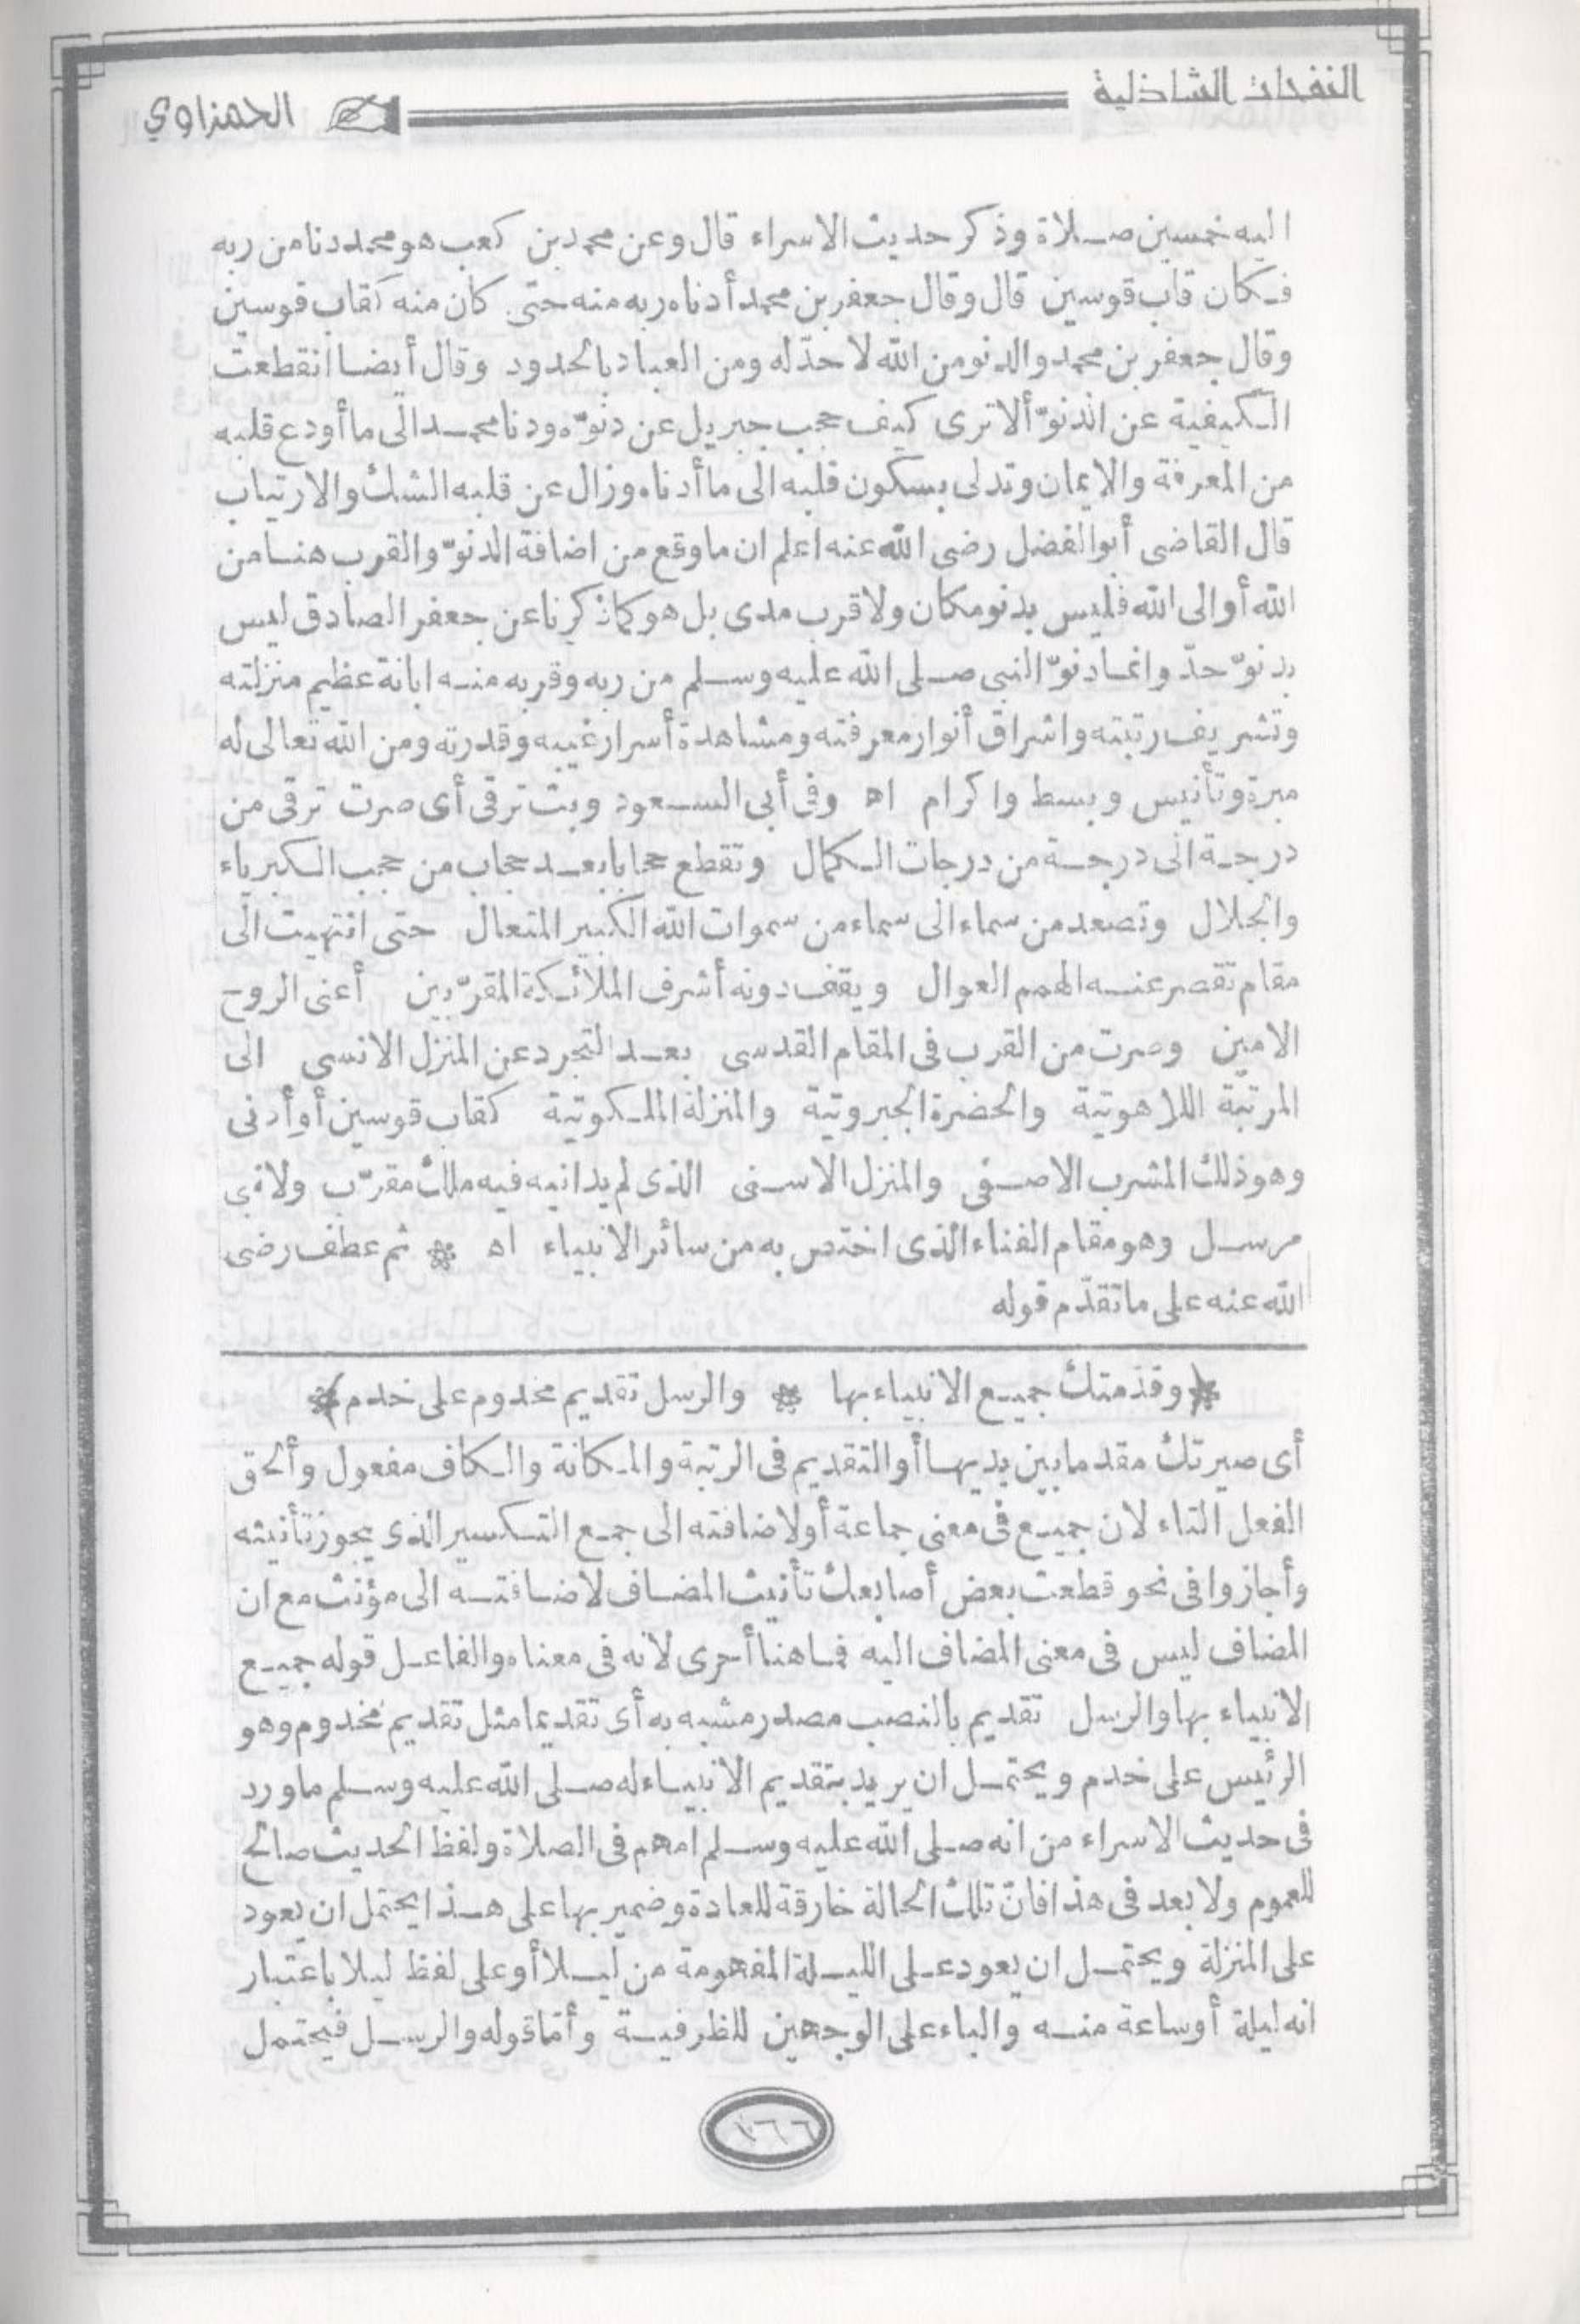 النفحات الشاذلية
الحمزاوي
اليه خمسين صلاة وذكر حديث الاسراء قال وعن محمد بن كعب هو محمد دنا من ربه
فكان قاب قوسين قال وقال جعفر بن محمد أدناه ربه منه حتى كان منه كقاب قوسين
وقال جعفر بن محمد والدنو من الله لا حدّ له ومن العباد بالحدود وقال أيضا انقطعت
الكيفية عن الدنوّ ألا ترى كيف حجب جبريل عن دنوّه ودنا محمد الى ما أودع قلبه
من المعرفة والايمان وتدلى بسكون قلبه الى ما أدناه وزال عن قلبه الشك والارتياب
قال القاضى أبو الفضل رضى الله عنه اعلم ان ما وقع من اضافة الدنوّ والقرب هنا من
الله أو الى الله فليس بدنو مكان ولا قرب مدى بل هو كما ذكرنا عن جعفر الصادق ليس
بدنوّ حدّ وانما دنوّ النبى صلى الله عليه وسلم من ربه وقربه منه ابانة عظيم منزلته
وتشريف رتبته واشراق أنوار معرفته ومشاهدة أسرار غيبه وقدرته ومن الله تعالى له
مبرة وتأنيس وبسط واكرام اه وفى أبى السعود وبت ترقى أى صرت ترقى من
درجة الى درجة من درجات الكمال وتقطع حجابا بعد حجاب من حجب الكبرياء
والجلال وتصعد من سماء الى سماء من سموات الله الكبير المتعال حتى انتهيت الى
مقام تقصر عنه الهمم العوال ويقف دونه أشرف الملائكة المقرّبين أعنى الروح
الامين وصرت من القرب فى المقام القدسى بعد التجرد عن المنزل الانسى الى
المرتبة اللاهوتية والحضرة الجبروتية والمنزلة الملكوتية كقاب قوسين أو أدنى
وهو ذلك المشرب الاصفى والمنزل الاسنى الذى لم يدانيه فيه ملك مقرّب ولا نبى
مرسل وهو مقام الفناء الذى اختص به من سائر الانبياء اه * ثم عطف رضى
الله عنه على ما تقدّم قوله
*وقدّمتك جميع الانبياء بها * والرسل تقديم مخدوم على خدم*
أى صيرتك مقدما بين يديها أو التقديم فى الرتبة والمكانة والكاف مفعول وألحق
الفعل التاء لان جميع فى معنى جماعة أو لاضافته الى جمع التكسير الذى يجوز تأنيثه
وأجازوا فى نحو قطعت بعض أصابعك تأنيث المضاف لاضافته الى مؤنث مع ان
المضاف ليس فى معنى المضاف اليه فما هنا أحرى لانه فى معناه والفاعل قوله جميع
الانبياء بها والرسل تقديم بالنصب مصدر مشبه به أى تقديما مثل تقديم مخدوم وهو
الرئيس على خدم ويحتمل ان يريد بتقديم الانبياء له صلى الله عليه وسلم ما ورد
فى حديث الاسراء من انه صلى الله عليه وسلم أمهم فى الصلاة ولفظ الحديث صالح
للعموم ولا بعد فى هذا فانّ تلك الحالة خارقة للعادة وضمير بها على هذا يحتمل ان يعود
على المنزلة ويحتمل ان يعود على الليلة المفهومة من ليلا أو على لفظ ليلا باعتبار
انه ليلة أو ساعة منه والباء على الوجهين للظرفية وأمّا قوله والرسل فيحتمل
١٦٦